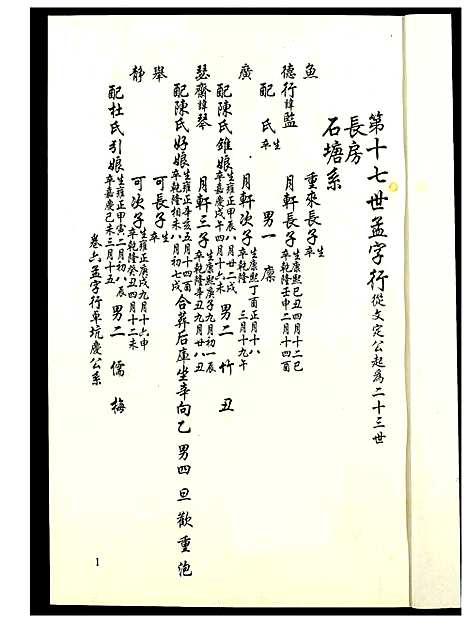 第十七世孟字行從文定公起為二十三世
長房
石塘系
魚 重來長子生卒
德行諱監 月軒長子生康熙己丑四月十二巳卒乾隆壬申二月十四酉
配 氏生卒 男一 廩
廣 月軒次子生康熙丁酉正月十八卒乾隆 三月十九午
配陳氏錐娘生雍正甲辰八月廿二戌卒嘉慶戊午四月十六未 男二 竹 丑
瑟齋諱琴 月軒三子生康熙庚子九月初一辰卒乾隆辛丑九月廿八丑
配陳氏好娘生雍正辛亥五月十四酉卒乾隆 未八月初七戌 合葬后庫坐辛向乙 男四 旦 歡 重 泡
舉 可長子生卒
靜 可次子生雍正庚戌九月十六申卒乾隆癸丑四月十二未
配杜氏引娘生雍正甲寅二月初八辰卒嘉慶己未三月十五 男二 儒 梅
卷六孟字行阜坑慶公系
1